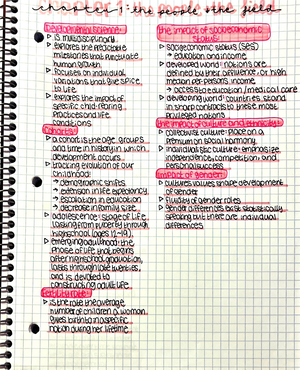 chapter 1: the people & the field
developmental science
is multidisciplinary
explores the predictable
milestones that punctuate
human growth.
focuses on individual
variations that give spice
to life.
explores the impact of
specific child-rearing
practices and life
conditions.
cohorts
a cohort is the age groups
and time in history in which
development occurs.
tracking evolution of our
childhood:
→ demographic shifts
→ extension in life expectancy
→ escalation in education
→ decrease in family size
adolescence: stage of life
lasting from puberty through
high school (ages 12-19).
emerging adulthood: the
phase of life that begins
after high school graduation,
lasts through late twenties,
and is devoted to
constructing adult life.
fertility rate
is the rate the average
number of children a woman
gives birth to in a specific
nation during her lifetime.
the impact of socioeconomic
status
socioeconomic status (SES)
→ education and income
developed world: nations are
defined by their affluence, or high
median per-person income
→ access to education/medical care
developing world: countries stand
in sharp contrast to these most
privileged nations
the impact of culture and ethnicity
collectivist culture: place a
premium on social harmony.
individualistic culture: emphasize
independence, competition, and
personal success.
impact of gender
cultures values shape development
of gender.
fluidity of gender roles
gender differences exist statistically
speaking but there are individual
differences